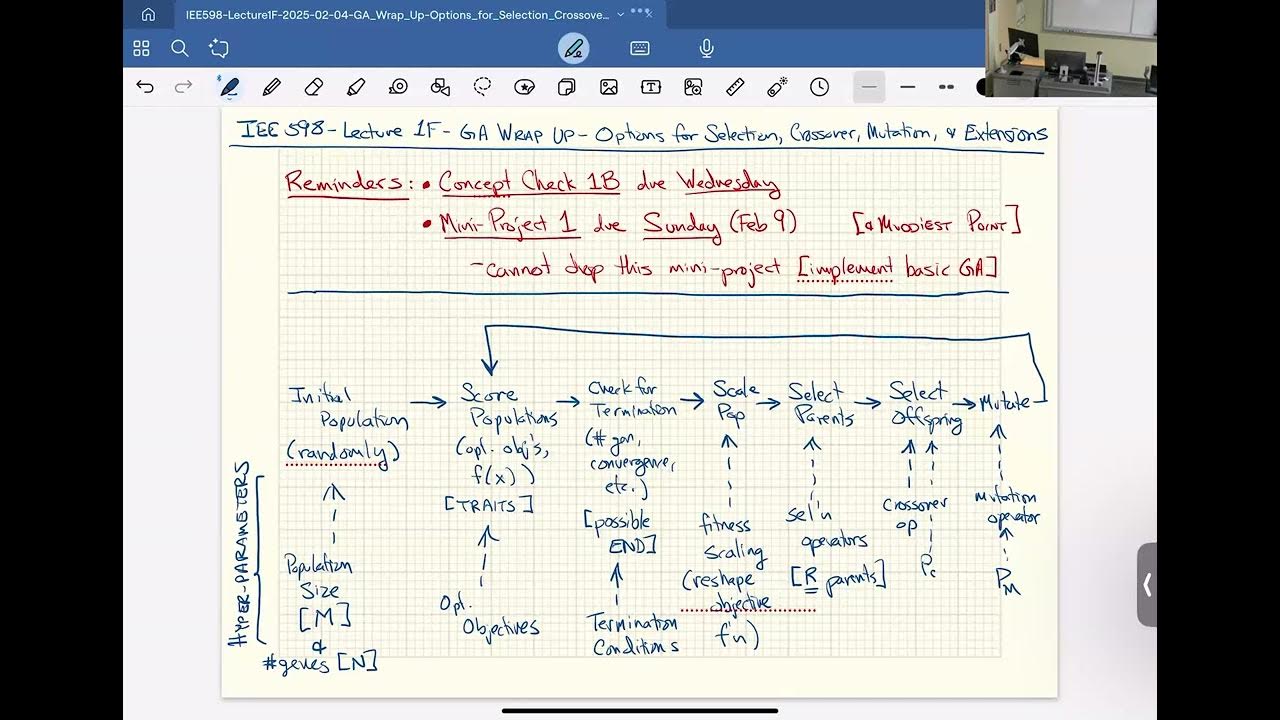 IEE598-Lecture1F-2025-02-04-GA_Wrap_Up-Options_for_Selection_Crossove...
IEE 598 - Lecture 1F - GA WRAP UP - Options for Selection, Crossover, Mutation, & Extensions
Reminders: • Concept Check 1B due Wednesday
• Mini-Project 1 due Sunday (Feb 9) [& MUDDIEST POINT]
- cannot drop this mini-project [implement basic GA]
Initial
Population
(randomly)
Score
Populations
(opt. obj's,
f(x))
[TRAITS]
Check for
Termination
(# gen,
convergence,
etc.)
[possible
END]
Scale
Pop
Select
Parents
Select
Offspring
Mutate
HYPER-PARAMETERS
Population
Size
[M]
&
#genes [N]
Opt.
Objectives
Termination
Conditions
fitness
scaling
(reshape
objective
f'n)
sel'n
operators
[R parents]
crossover
op
Pc
mutation
operator
PM